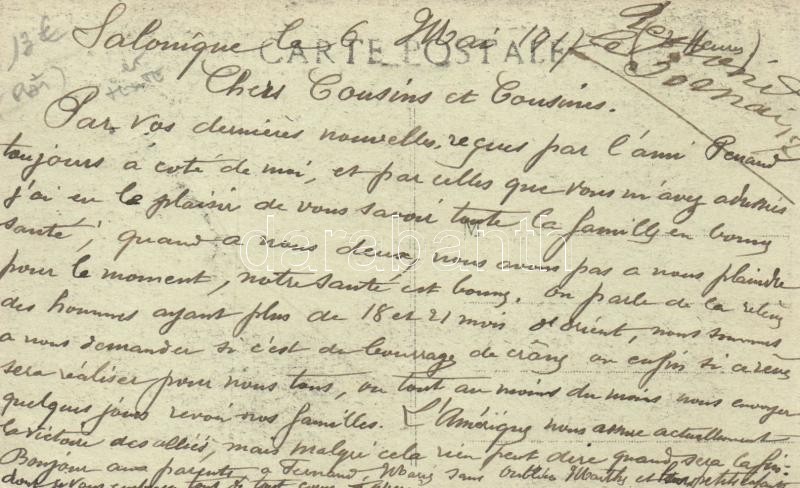 Salonique le 6 Mai 1917
CARTE POSTALE
Chers Cousins et Cousines.
Par vos dernières nouvelles, reçues par l'ami Renaud
toujours à coté de moi, et par celles que vous m'avez adressées
j'ai eu le plaisir de vous savoir toute la famille en bonne
santé; quand a nous deux, nous avons pas a nous plaindre
pour le moment, notre santé est bonne. on parle de la relève
des hommes ayant plus de 18 et 21 mois d'Orient, nous sommes
a nous demander si c'est du bourrage de crâne ou enfin si ce rêve
sera réaliser pour nous tous, ou tout au moins du moins nous envoyer
quelques jours revoir nos familles. L'Amérique nous assure actuellement
la victoire des alliés, mais malgré cela rien peut dire quand sera la fin.
Bonjour aux parents, a Fernand, Marie sans oublier Marthe et les petits
darabanth
13 €